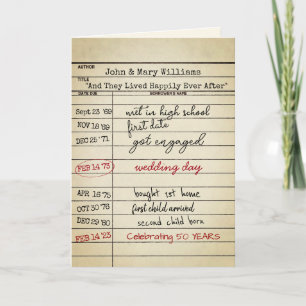 AUTHOR
John & Mary Williams
TITLE
"And They Lived Happily Ever After"
DATE DUE BORROWER'S NAME
Sept 23 '69 met in high school
NOV 18 '69 first date
DEC 25 '71 got engaged
FEB 14 '73 wedding day
APR 16 '75 bought 1st home
OCT 30 '76 first child arrived
DEC 29 '80 second child born
FEB 14 '23 Celebrating 50 YEARS